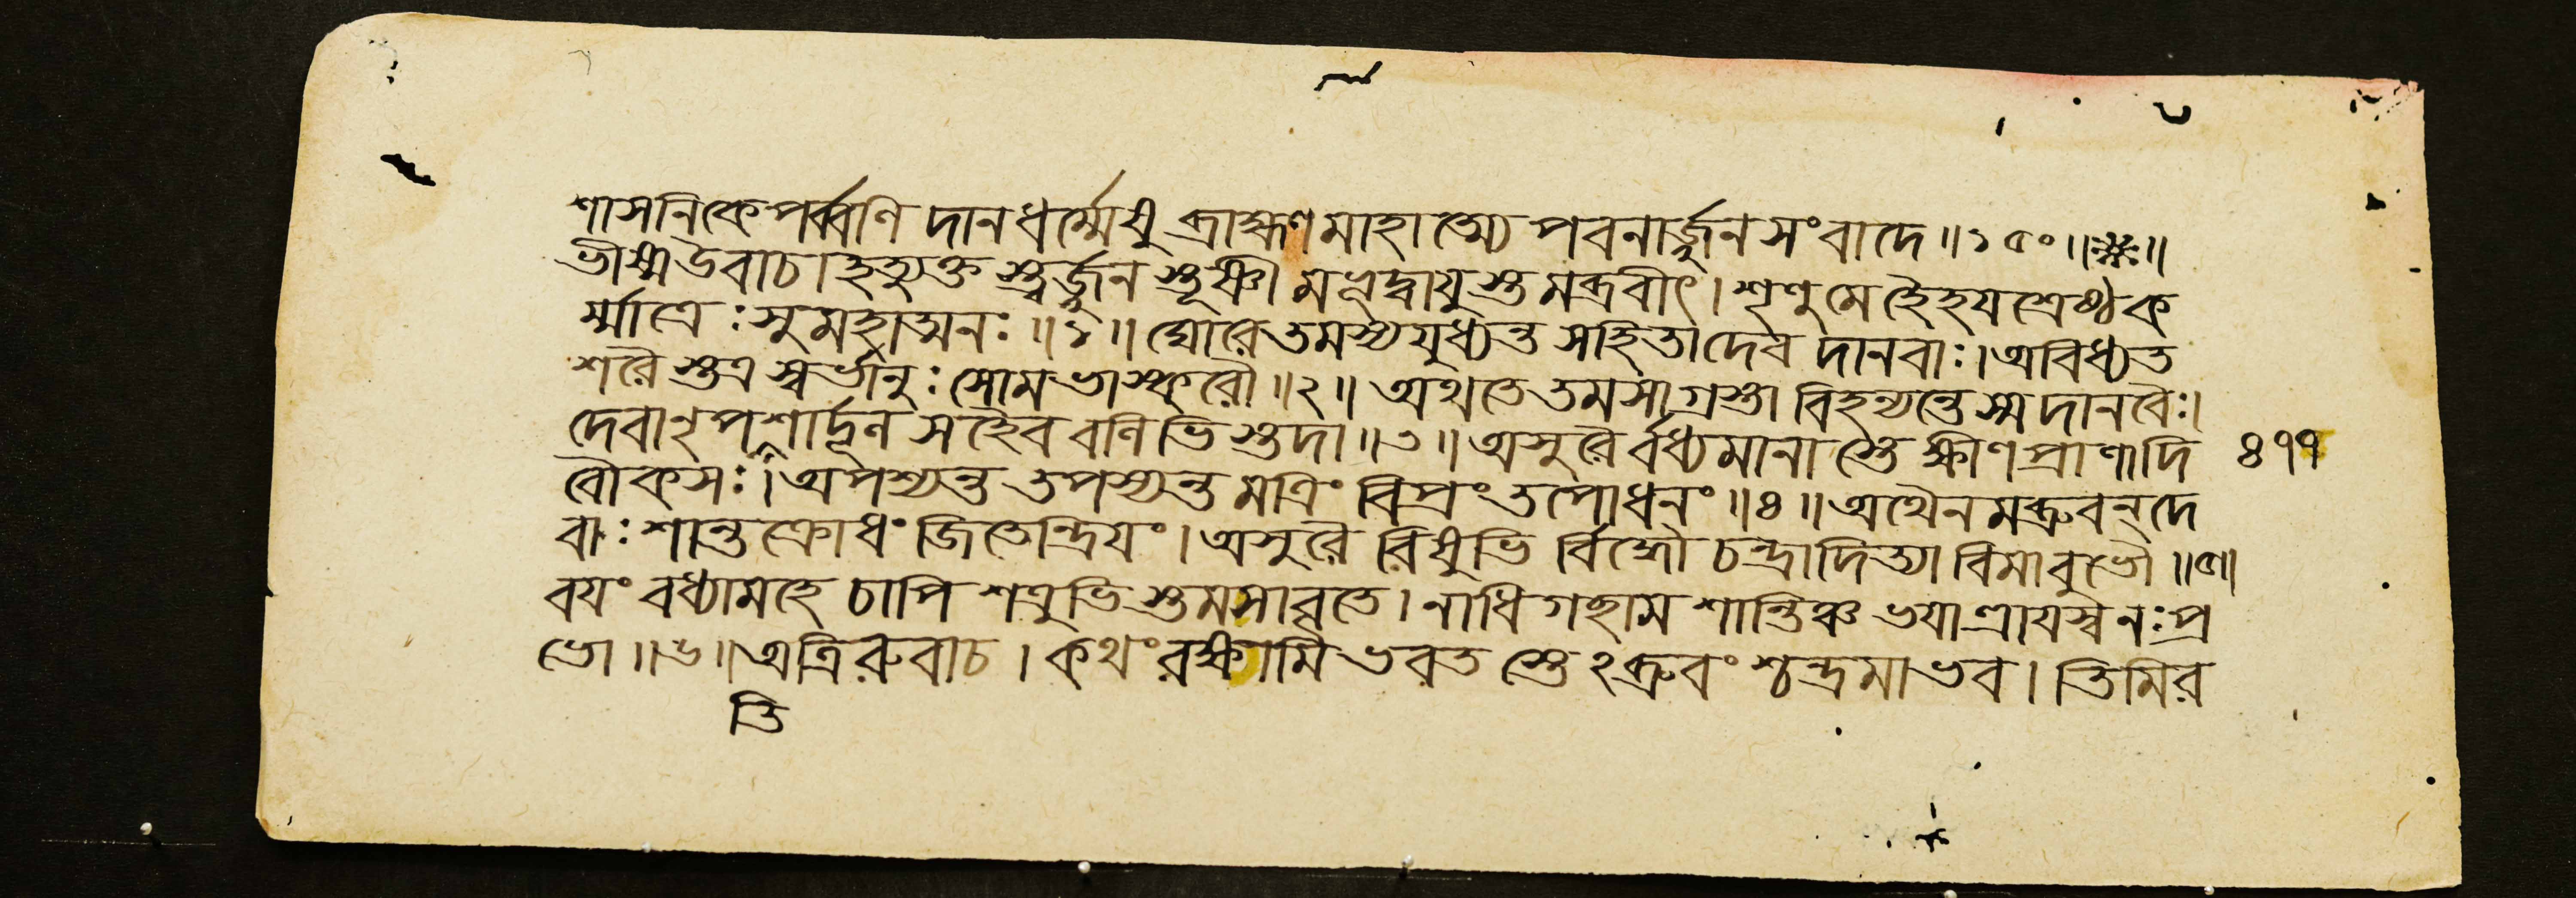 শাসনিকে পর্ব্বণি দানধর্ম্মেষু ব্রাহ্মণমাহাত্ম্যে পবনার্জ্জুনসংবাদে॥১৫০॥❋॥
ভীষ্ম উবাচ। ইত্যুক্তস্ত্বর্জ্জুনস্তূষ্ণীমভূদ্বায়ুস্তমব্রবীৎ। শৃণু মে হৈহয়শ্রেষ্ঠ ক
র্ম্মাত্রেঃ সুমহাত্মনঃ॥১॥ ঘোরে তমস্যযুধ্যন্ত সহিতা দেবদানবাঃ। অবিধ্যত
শরৈস্তত্র স্বর্ভানুঃ সোমভাস্করৌ॥২॥ অথ তে তমসা গ্রস্তা বিহন্যন্তে স্ম দানবৈঃ।
দেবা নৃপশার্দ্দূল সহৈব বলিভিস্তদা॥৩॥ অসুরৈর্বধ্যমানাস্তে ক্ষীণপ্রাণা দি
বৌকসঃ। অপশ্যন্ত তপস্যন্তমত্রিং বিপ্রং তপোধনং॥৪॥ অথৈনমব্রুবন্ দে
বাঃ শান্তক্রোধং জিতেন্দ্রিয়ং। অসুরৈরিষুভির্বিদ্ধৌ চন্দ্রাদিত্যাবিমাবুভৌ॥৫॥
বয়ং বধ্যামহে চাপি শত্রুভিস্তমসাবৃতে। নাধিগচ্ছাম শান্তিঞ্চ ভয়াত্ত্রায়স্ব নঃ প্র
ভো॥৬॥ অত্রিরুবাচ। কথং রক্ষামি ভবতস্তেঽব্রুবংশ্চন্দ্রমা ভব। তিমির
তি
৪৭৭